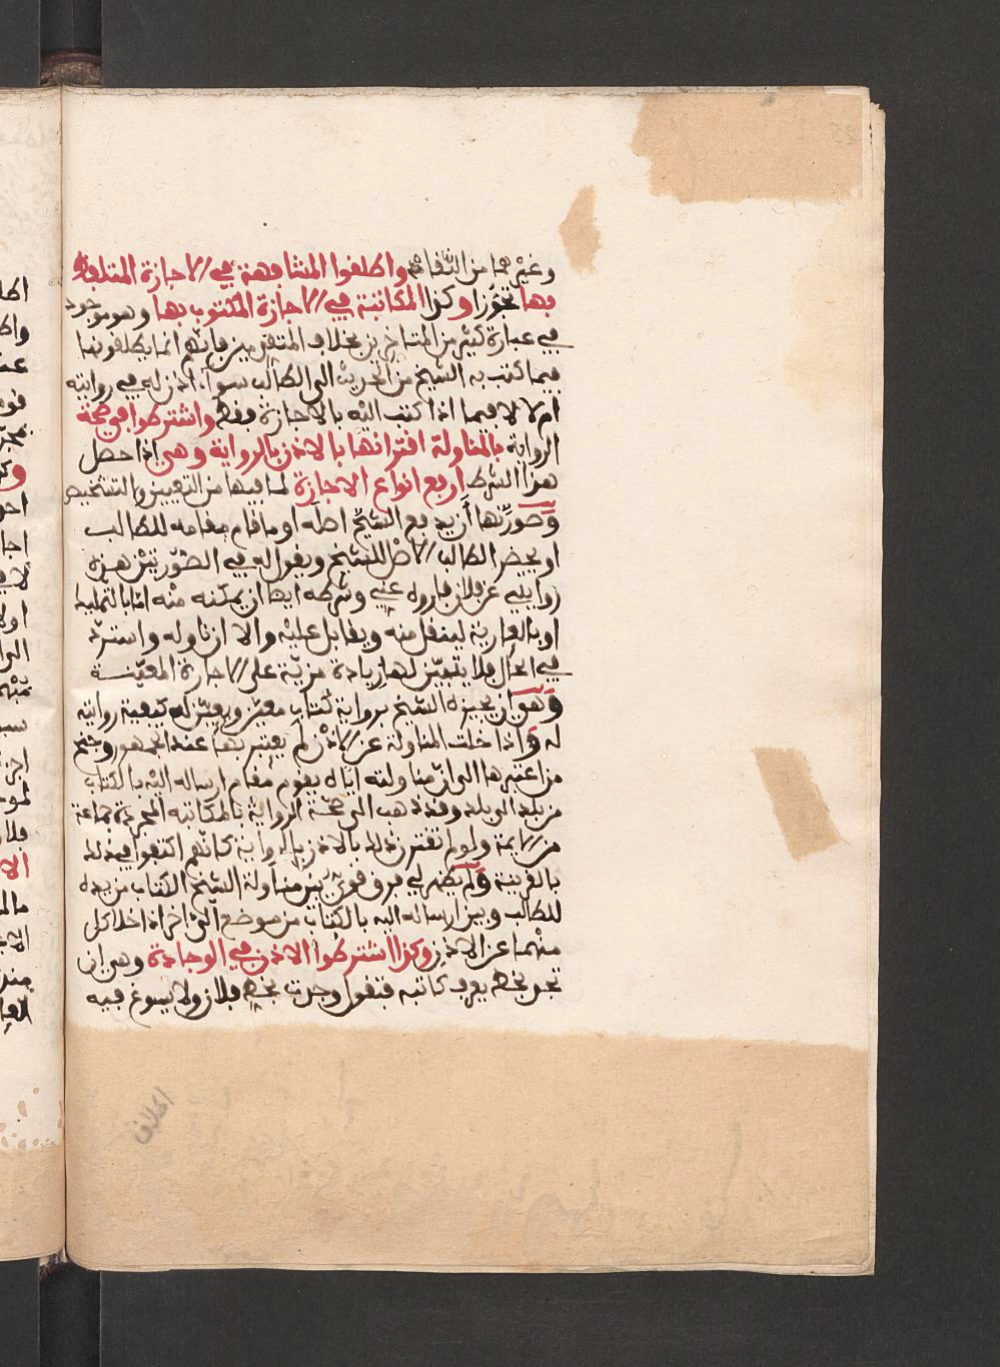 وغيرهما من الثقات واطلقوا المشافهة في الاجازة المتلفظ
بها تجوزا وكذا المكاتبة في الاجازة المكتوب بها وهو موجود
في عبارة كثير من المتاخرين بخلاف المتقدمين فانهم انما يطلقونها
فيما كتب به الشيخ من الحديث الى الطالب سواء اذن له في روايته
ام لا لا فيما اذا كتب اليه بالاجازة فقط واشترطوا في صحة
الرواية بالمناولة اقترانها بالاذن بالرواية وهي اذا حصل
هذا الشرط ارفع انواع الاجازة لما فيها من التعيين والتشخيص
وصورتها أن يدفع الشيخ اصله او ما قام مقامه للطالب
او يحضر الطالب الاصل للشيخ ويقول له في الصورتين هذه
روايتي عن فلان فاروه عني وشرطه ايضا ان يمكنه منه اما بالتمليك
او بالعارية لينقل منه ويقابل عليه والا ان ناوله واسترد
في الحال فلا يتبين لها زيادة مزية على الاجازة المعينة
وهو ان يجيزه الشيخ برواية كتاب معين ويعين له كيفية روايته
له واذا خلت المناولة عن الاذن لم يعتبر بها عند الجمهور وجنح
من اعتبرها الى ان مناولته اياه يقوم مقام ارساله اليه بالكتاب
من بلد الى بلد وقد ذهب الى صحة الرواية بالمكاتبه المجردة جماعة
من الايمة ولو لم تقترن ذلك بالاذن بالرواية كانهم اكتفوا في ذلك
بالقرينة ولم يظهر لي فرق قوي بين مناولة الشيخ الكتاب من يده
للطالب وبين ارساله اليه بالكتاب من موضع الى اخر اذا خلا كل
منهما عن الاذن وكذا اشترطوا الاذن في الوجادة وهي ان
تجد بخط يعرف كاتبه فتقول وجدت بخط فلان ولا يسوغ فيه
اطلاق